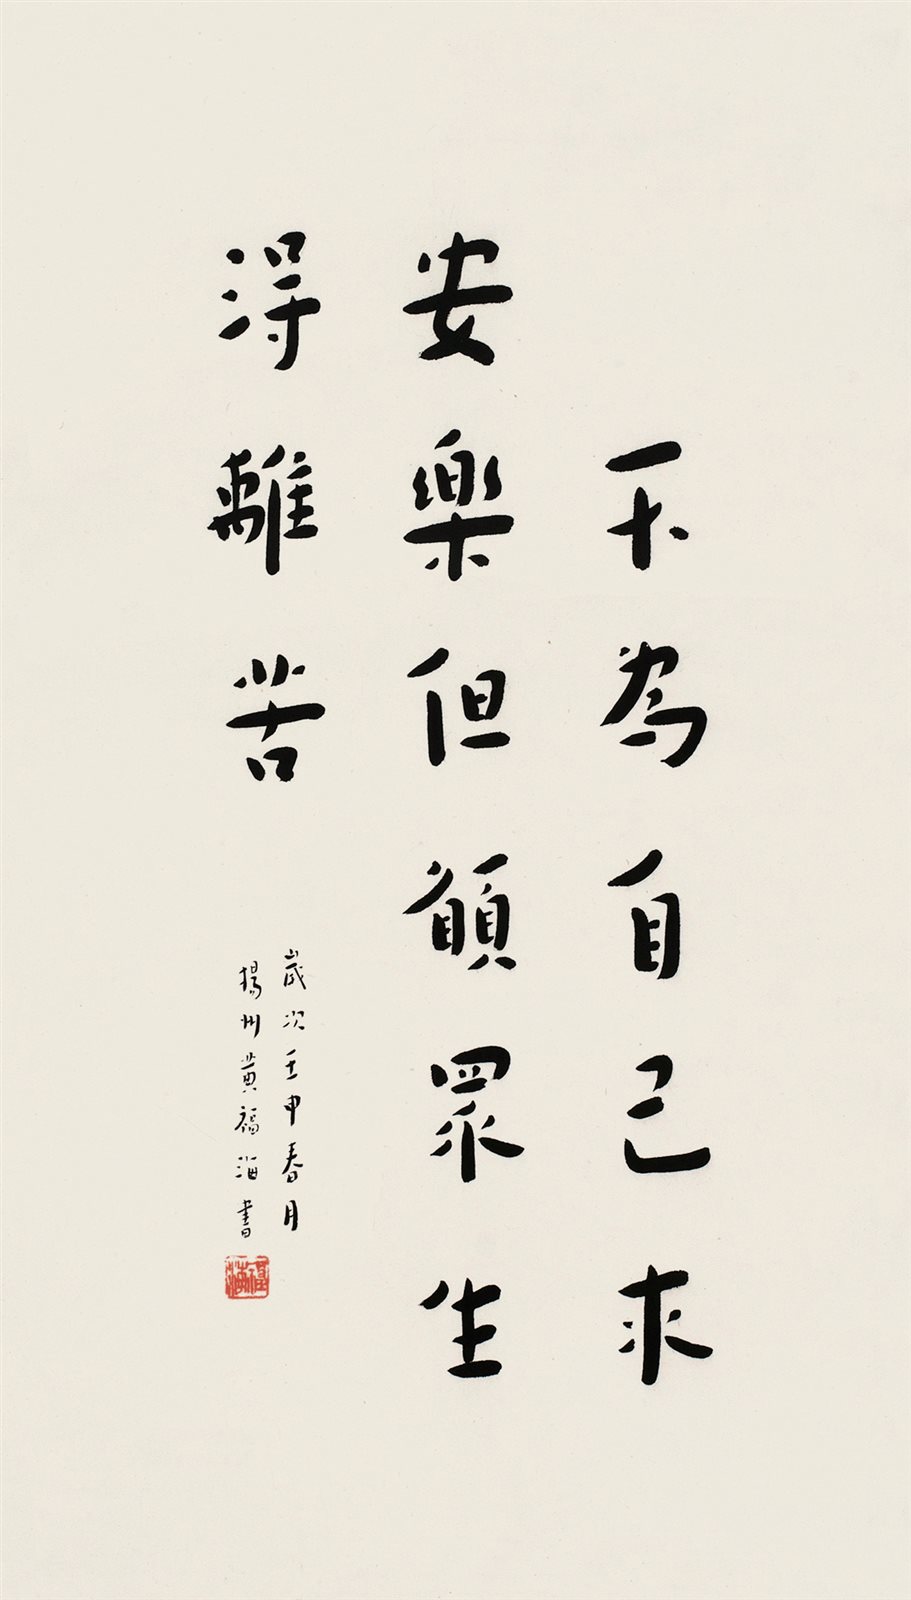 不為自己求
安樂但願眾生
得離苦
歲次壬申春月
揚州黃福海書
福海